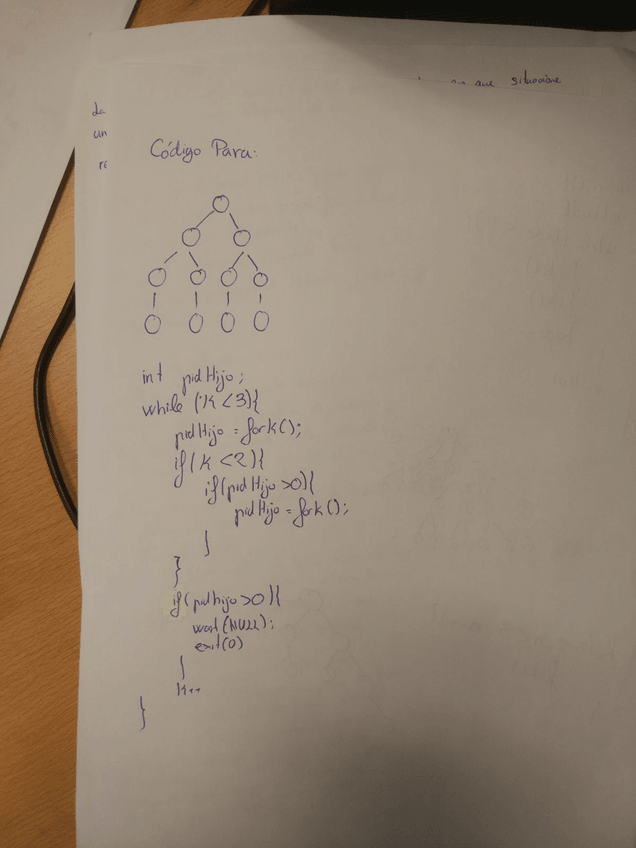 que situacione
da
un
re
Código Para:
int pidHijo;
while (K<3){
pidHijo = fork();
if(K<2){
if(pidHijo>0){
pidHijo = fork();
}
}
if(pidhijo>0){
wait(NULL);
exit(0)
}
K++
}